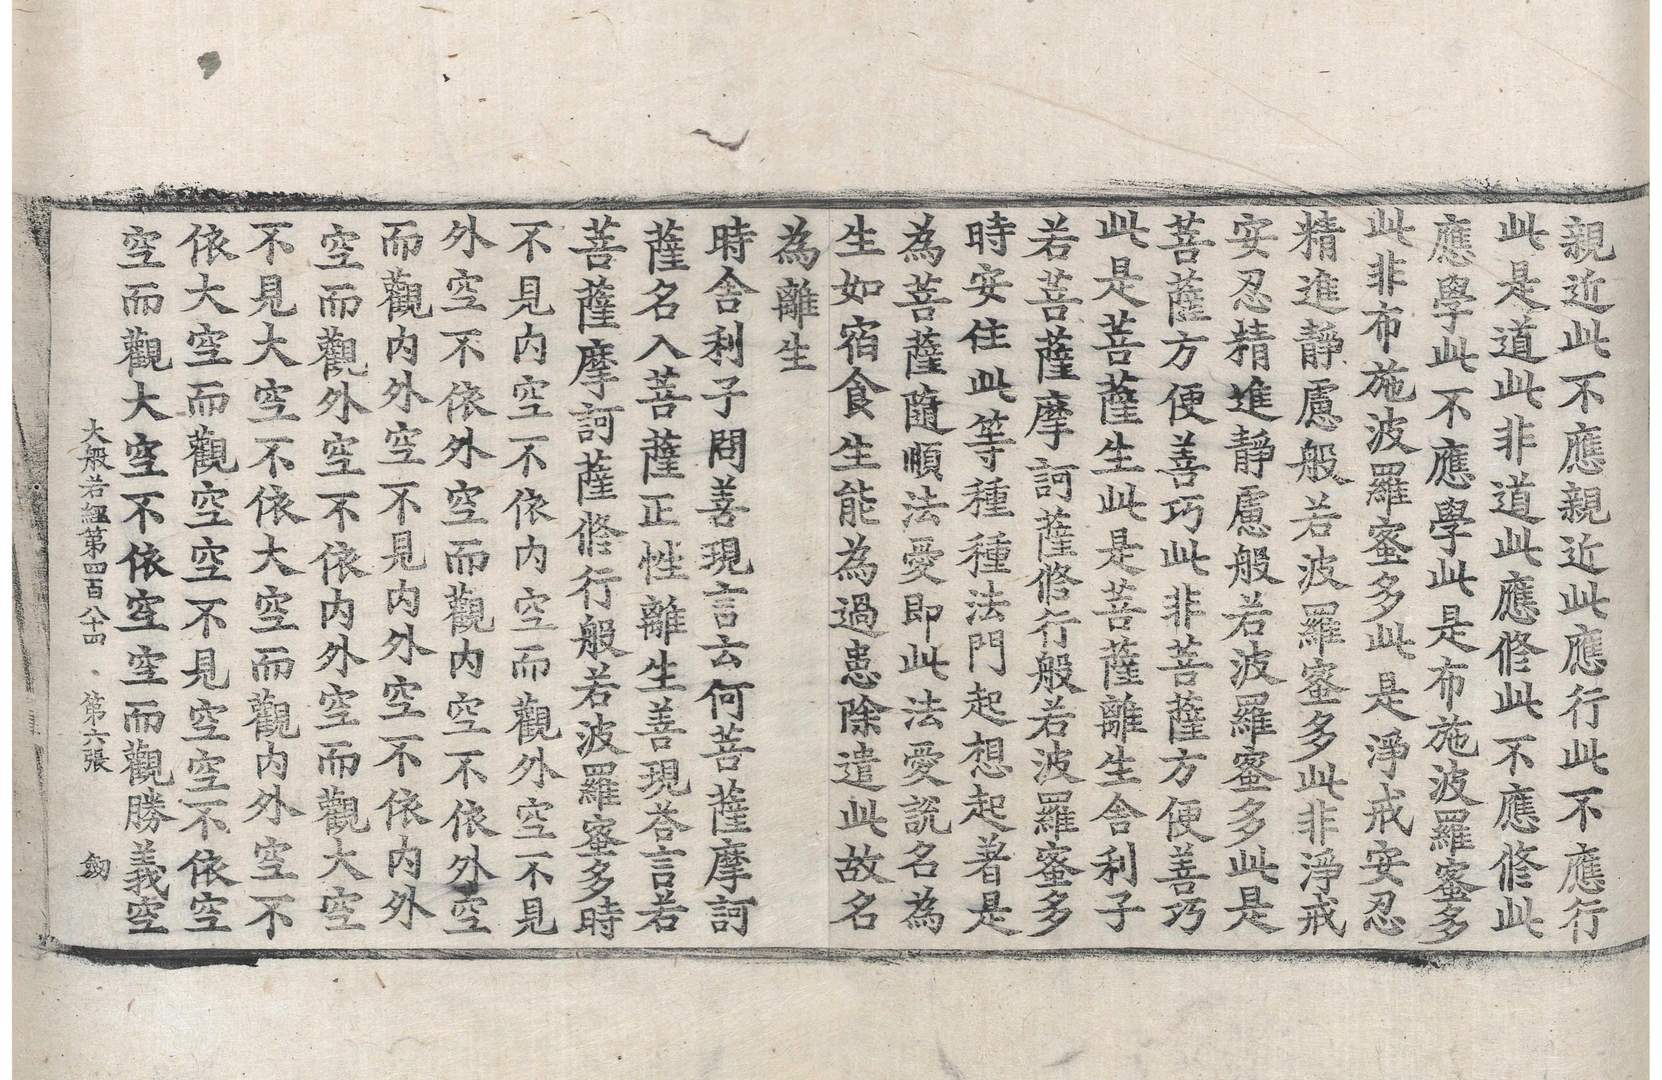 親近此不應親近此應行此不應行
此是道此非道此應修此不應修此
應學此不應學此是布施波羅蜜多
此非布施波羅蜜多此是淨戒安忍
精進靜慮般若波羅蜜多此非淨戒
安忍精進靜慮般若波羅蜜多此是
菩薩方便善巧此非菩薩方便善巧
此是菩薩生此是菩薩離生舍利子
若菩薩摩訶薩修行般若波羅蜜多
時安住此等種種法門起想起著是
為菩薩隨順法愛即此法愛說名為
生如宿食生能為過患除遣此故名
為離生
時舍利子問善現言云何菩薩摩訶
薩名入菩薩正性離生善現荅言若
菩薩摩訶薩修行般若波羅蜜多時
不見内空不依内空而觀外空不見
外空不依外空而觀内空不依外空
而觀内外空不見内外空不依内外
空而觀外空不依内外空而觀大空
不見大空不依大空而觀内外空不
依大空而觀空空不見空空不依空
空而觀大空不依空空而觀勝義空
大般若經第四百八十四 第六張 劒